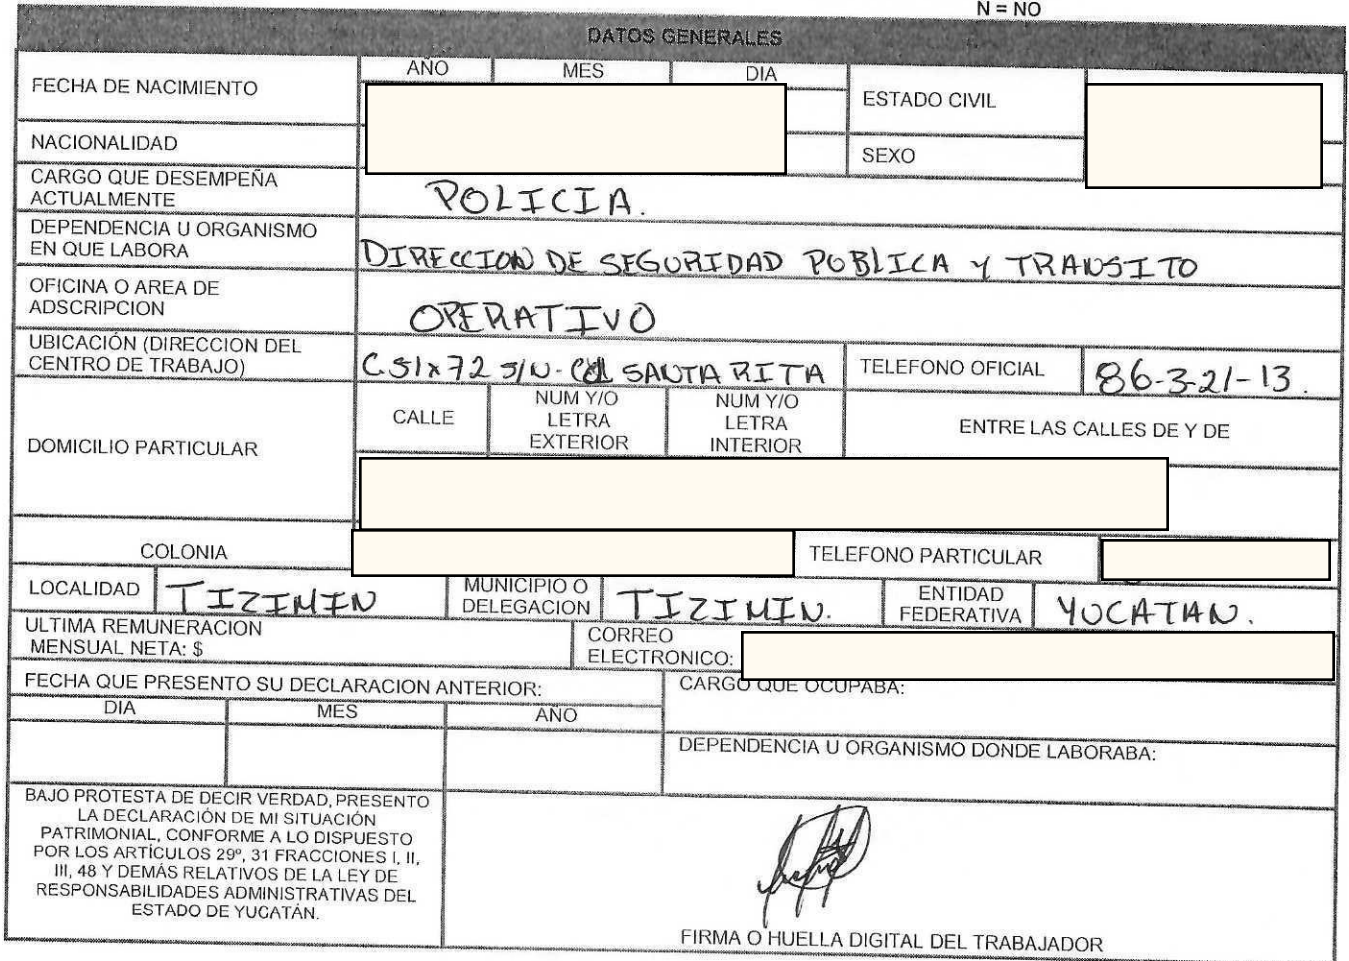 N = NO
DATOS GENERALES
FECHA DE NACIMIENTO
AÑO MES DIA
ESTADO CIVIL
NACIONALIDAD
SEXO
CARGO QUE DESEMPEÑA
ACTUALMENTE
POLICIA.
DEPENDENCIA U ORGANISMO
EN QUE LABORA
DIRECCION DE SEGURIDAD PUBLICA Y TRANSITO
OFICINA O AREA DE
ADSCRIPCION
OPERATIVO
UBICACIÓN (DIRECCION DEL
CENTRO DE TRABAJO)
C 51x72 S/N- Col SANTA RITA
TELEFONO OFICIAL
86-3-21-13.
DOMICILIO PARTICULAR
CALLE
NUM Y/O
LETRA
EXTERIOR
NUM Y/O
LETRA
INTERIOR
ENTRE LAS CALLES DE Y DE
COLONIA
TELEFONO PARTICULAR
LOCALIDAD
TIZIMIN
MUNICIPIO O
DELEGACION
TIZIMIN.
ENTIDAD
FEDERATIVA
YUCATAN.
ULTIMA REMUNERACION
MENSUAL NETA: $
CORREO
ELECTRONICO:
FECHA QUE PRESENTO SU DECLARACION ANTERIOR:
CARGO QUE OCUPABA:
DIA MES AÑO
DEPENDENCIA U ORGANISMO DONDE LABORABA:
BAJO PROTESTA DE DECIR VERDAD, PRESENTO
LA DECLARACIÓN DE MI SITUACIÓN
PATRIMONIAL, CONFORME A LO DISPUESTO
POR LOS ARTÍCULOS 29º, 31 FRACCIONES I, II,
III, 48 Y DEMÁS RELATIVOS DE LA LEY DE
RESPONSABILIDADES ADMINISTRATIVAS DEL
ESTADO DE YUCATÁN.
FIRMA O HUELLA DIGITAL DEL TRABAJADOR